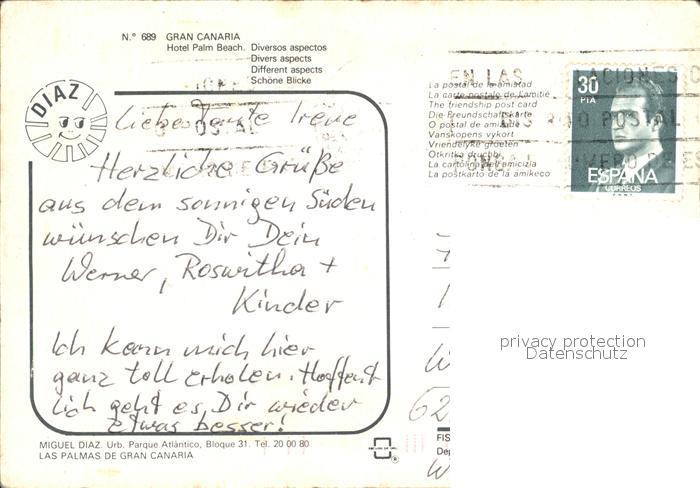 N.° 689 GRAN CANARIA
Hotel Palm Beach. Diversos aspectos
Divers aspects
Different aspects
Schöne Blicke
DIAZ
Liebe Tante Irene
Herzliche Grüße
aus dem sonnigen Süden
wünschen Dir Dein
Werner, Roswitha +
Kinder
Ich kann mich hier
ganz toll erholen. Hoffent
lich geht es Dir wieder
etwas besser!
MIGUEL DIAZ. Urb. Parque Atlántico, Bloque 31. Tel. 20 00 80
LAS PALMAS DE GRAN CANARIA
La postal de la amistad
La carte postale de l'amitié
The friendship post card
Die Freundschaftskarte
O postal de amizade
Vanskopens vykort
Vriendelyke groeten
Otkritka druchby
La cartolina dell'amicizia
La postkarto de la amikeco
EN LAS
POSTAL
30
PTA
ESPAÑA
CORREOS
privacy protection
Datenschutz
62
FIS
Dep